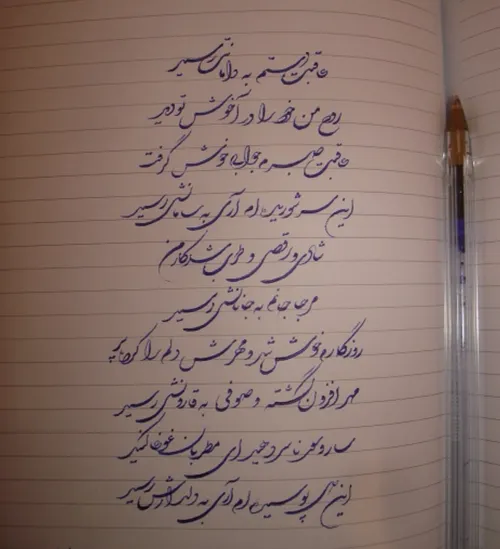 عاقبت دستم به دامانش رسید
روح من خود را در آغوش تو دید
عاقبت صبرم جوابی خوش گرفت
این سر شوریده ام آری به سامانش رسید
شادی و رقص و طرب شد کار من
مرحبا جانم به جانانش رسید
روزگارم خوش شد و مهرش دلم را کرده پر
مهر افزون گشته و صوفی به قارونش رسید
ساز و
این تن پوسیده ام آری به دلدارش رسید